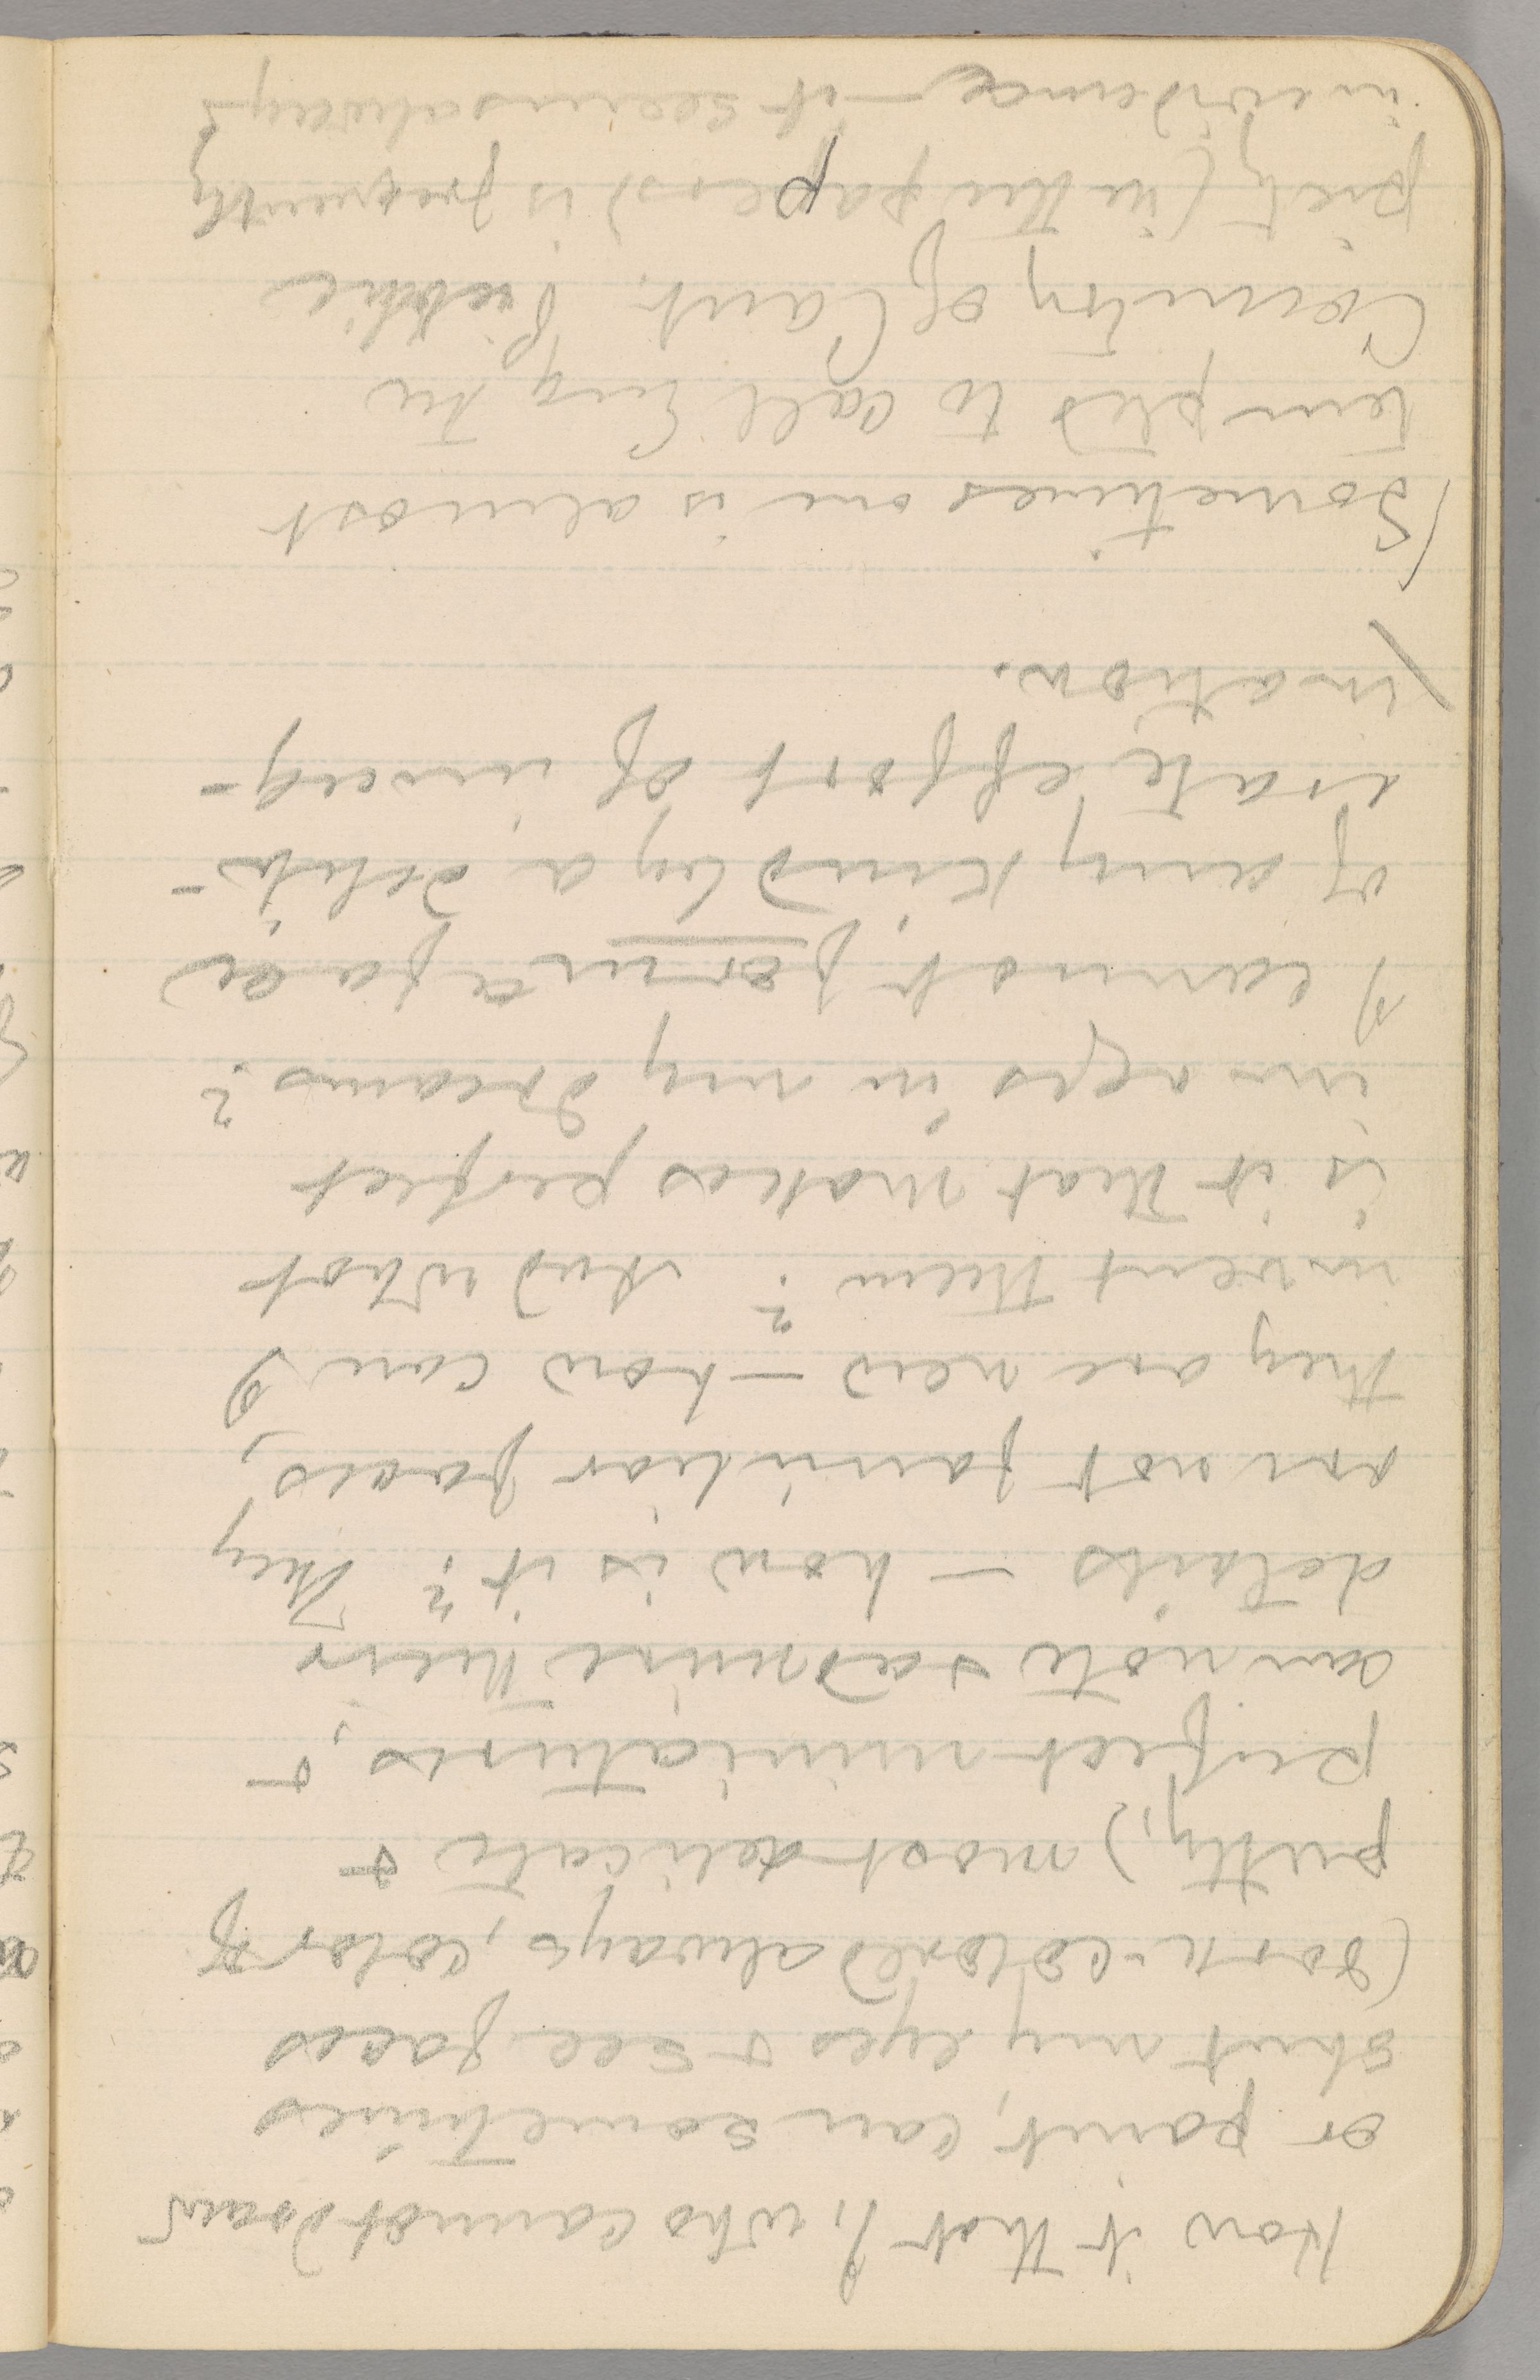 How it that I, who cannot draw
or paint, can sometimes
shut my eyes & see faces
(dark-colored always, color of
putty,) most delicate &
perfect miniatures, &
can note & admire their
details — how is it? They
are not familiar faces,
they are new — how can I
invent them? And what
is it that makes perfect
images in my dreams?
I cannot form a face
of any kind by a delib-
erate effort of imag-
ination.
Sometimes one is almost
tempted to call Eng the
Country of Cant. Public
piety (in the papers) is frequently
in evidence — it seems always